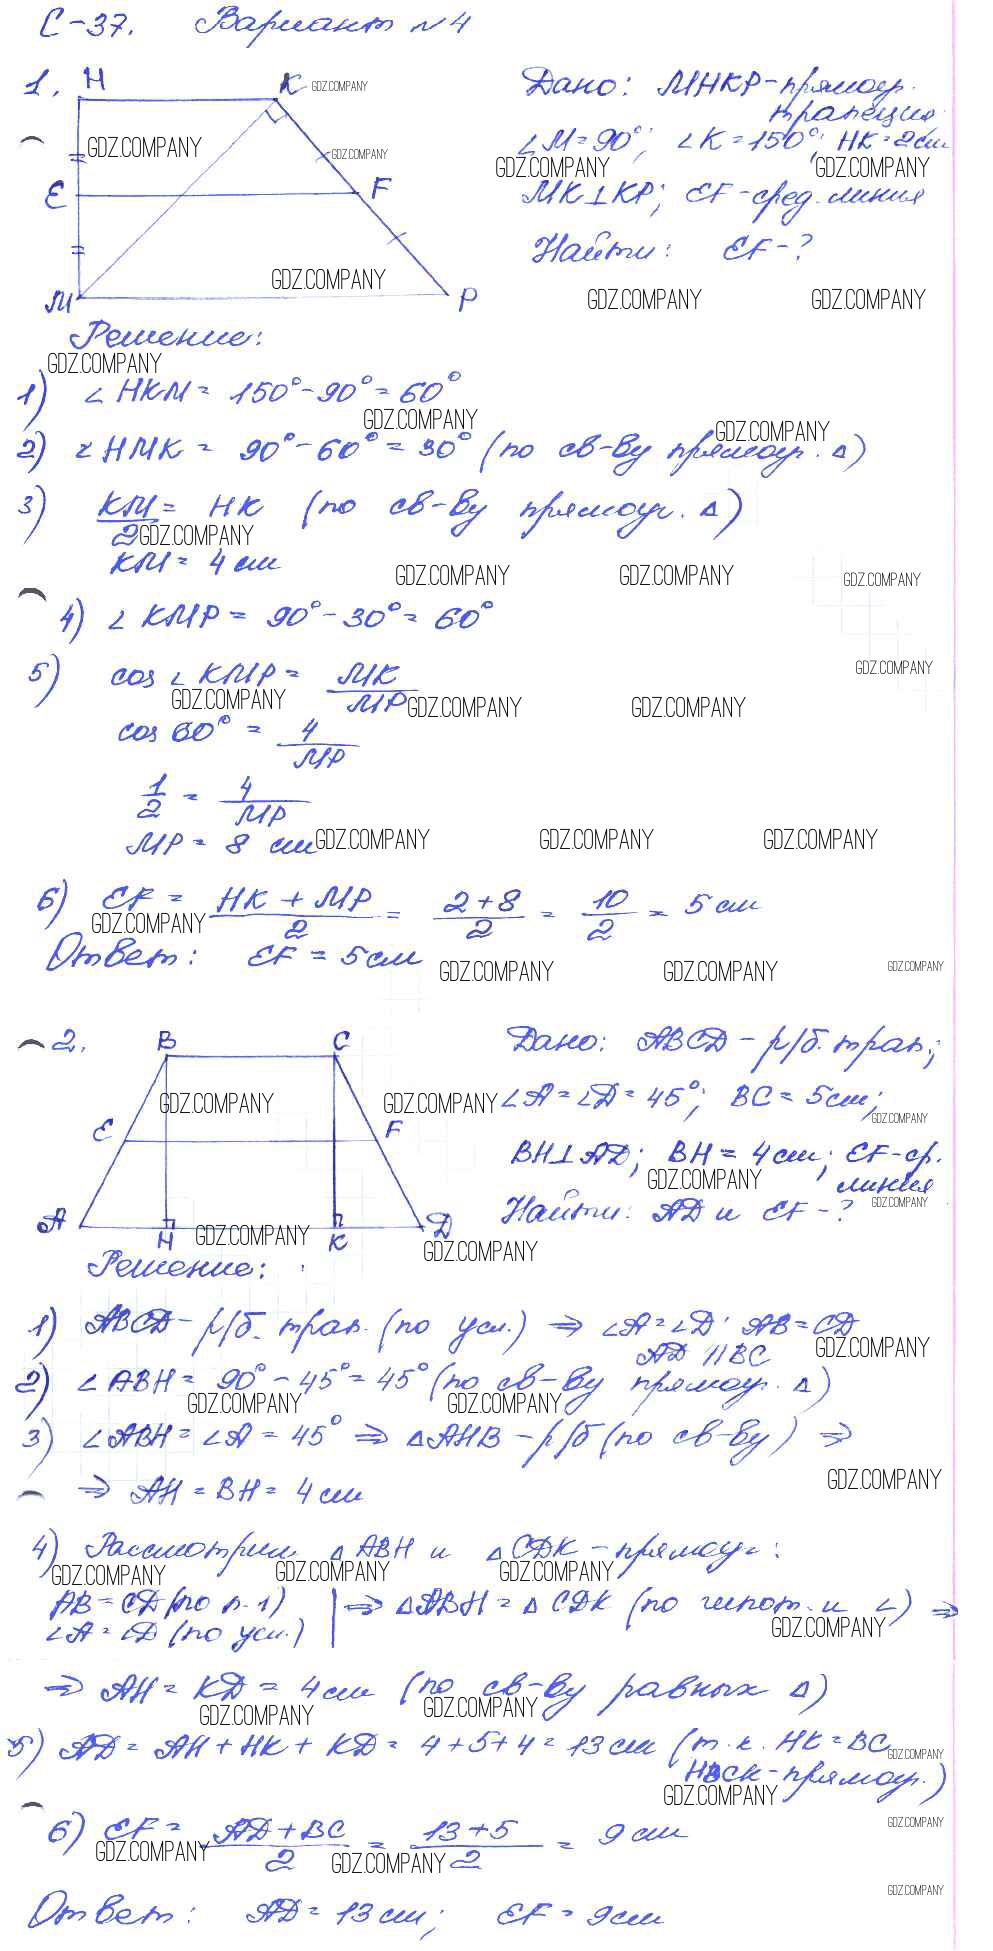 С-37. Вариант №4
1.
H K
E F
M P
Дано: MHKP-прямоуг.
трапеция
∠M=90°; ∠K=150°; HK=2см
MK⊥KP; EF-сред. линия
Найти: EF-?
Решение:
1) ∠HKM = 150°-90°=60°
2) ∠HMK = 90°-60°=30° (по св-ву прямоуг. △)
3) KM/2 = HK (по св-ву прямоуг. △)
KM = 4 см
4) ∠KMP = 90°-30°=60°
5) cos∠KMP = MK/MP
cos 60° = 4/MP
1/2 = 4/MP
MP = 8 см
6) EF = HK + MP/2 = 2+8/2 = 10/2 = 5 см
Ответ: EF = 5см
2.
B C
E F
A H K D
Дано: ABCD-р/б. трап.;
∠A=∠D=45°; BC=5см;
BH⊥AD; BH=4см; EF-ср.
линия
Найти: AD и EF-?
Решение:
1) ABCD-р/б. трап. (по усл.) ⇒ ∠A=∠D; AB=CD
AD ∥ BC
2) ∠ABH = 90°-45°=45° (по св-ву прямоуг. △)
3) ∠ABH=∠A=45° ⇒ △AHB-р/б (по св-ву) ⇒
⇒ AH=BH=4см
4) Рассмотрим △ABH и △CDK-прямоуг:
AB=CD (по п.1)
∠A=∠D (по усл.) | ⇒ △ABH=△CDK (по гипот. и ∠) ⇒
⇒ AH=KD=4см (по св-ву равных △)
5) AD=AH+HK+KD=4+5+4=13см (т.к. HK=BC
HBCK-прямоуг.)
6) EF = AD+BC/2 = 13+5/2 = 9см
Ответ: AD=13см; EF=9см
GDZ.COMPANY